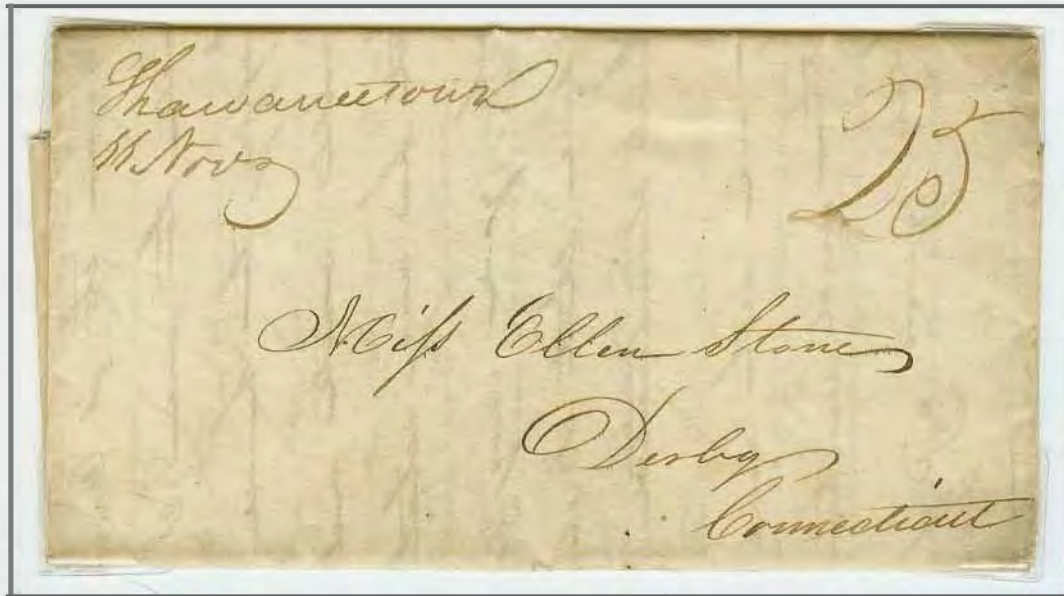 Shawaneetown
11 Nov
25
Miss Ellen Stone
Derby
Connecticut